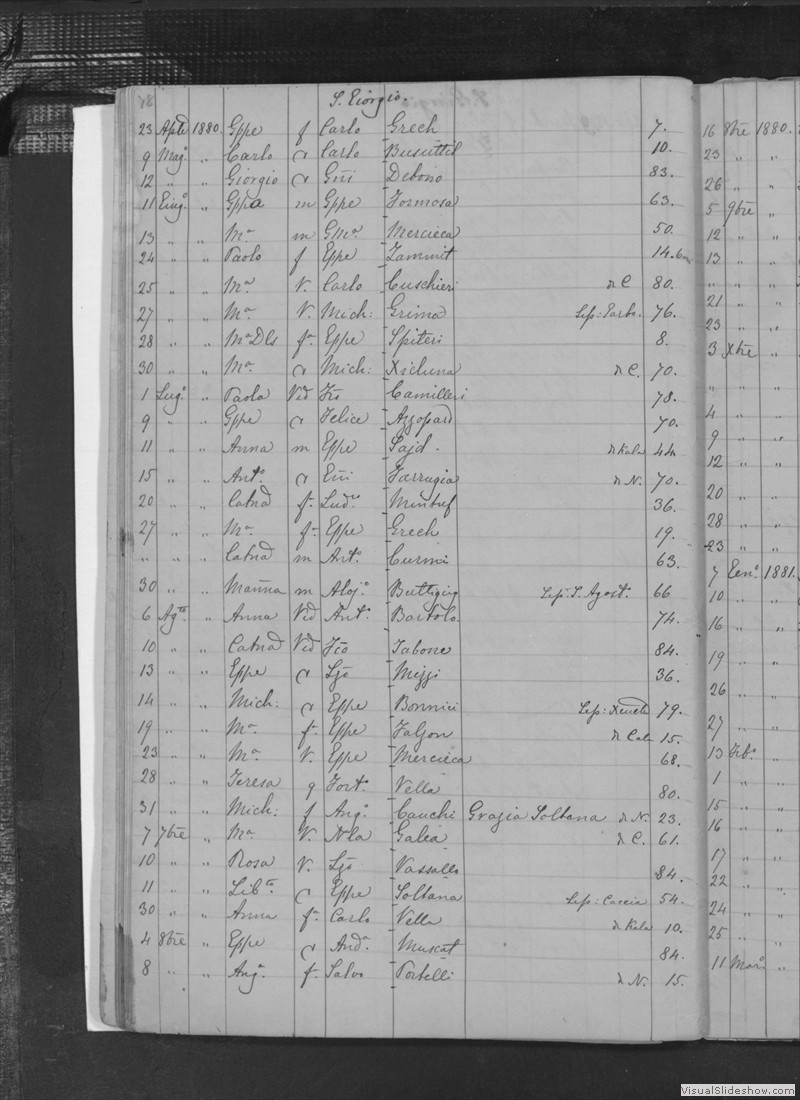 S. Giorgio.
23 Aple 1880. Gppe f Carlo Grech 7.
9 Mago „ Carlo a Carlo Busuttil 10.
12 „ „ Giorgio a Gni Debono 83.
11 Giugo „ Gppa m Gppe Formosa 63.
13 „ „ Ma m GMa Mercieca 50.
24 „ „ Paolo f Gppe Zammit 14.
25 „ „ Ma V. Carlo Cuschieri d C 80.
27 „ „ Ma V. Mich: Grima Sep: 76.
28 „ „ Ma Dls f Gppe Spiteri 8.
30 „ „ Ma a Mich: Xichuna d C. 70.
1 Lugo „ Paola Vid Fco Camilleri 78.
9 „ „ Gppe a Felice Azzopard 70.
11 „ „ Anna m Gppe Sajd. d Kala 44
15 „ „ Anto a Farrugia d N. 70.
20 „ „ Catna f Ludco Mintuf 36.
27 „ „ Ma f Gppe Grech 19.
„ „ „ Catna m Anto Curmi 63.
30 „ „ Marina m Alojo Buttigieg Sep: S. Agosto 66
6 Agto „ Anna Vid Anto Bartolo. 74.
10 „ „ Catna Vid Fco Tabone 84.
13 „ „ Gppe a Lzo Mizzi 36.
14 „ „ Mich: a Gppe Bonnici Sep: 79.
19 „ „ Ma f Gppe Falzon d Cala 15.
23 „ „ Ma V. Gppe Mercieca 68.
28 „ „ Teresa g Forto Vella 80.
31 „ „ Mich: f Ango Cauchi Grazia Soltana d N. 23.
7 7bre „ Ma V. Nla Galea d C. 61.
10 „ „ Rosa V. Lzo Vassallo 84.
11 „ „ Libta a Gppe Soltana Sep: Caccia 54.
30 „ „ Anna f Carlo Vella d Kala 10.
4 8bre „ Gppe a Anda Muscat 84.
8 „ „ Anga f Salvo Portelli d N. 15.
16 8bre 1880.
23 „ „
26 „ „
5 9bre „
12 „ „
13 „ „
„ „ „
21 „ „
23 „ „
3 Xbre „
„ „ „
4 „ „
9 „ „
12 „ „
20 „ „
28 „ „
23 „ „
7 Geno 1881.
10 „ „
16 „ „
19 „ „
26 „ „
27 „ „
13 Febo „
1 „ „
15 „ „
16 „ „
17 „ „
22 „ „
24 „ „
25 „ „
11 Maro „
VisualSlideshow.com